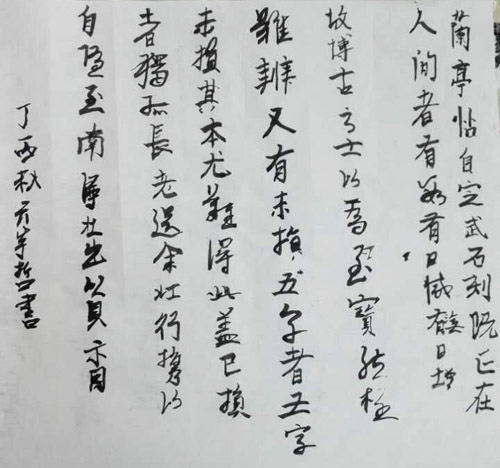 蘭亭帖自定武石刻既亡在
人間者有數有日減無日增
故博古之士以為至寶然極
難辨又有未損五字者五字
未損其本尤難得此蓋已損
者獨孤長老送余北行攜以
自隨至南潯北出以見示因
丁酉秋哲書